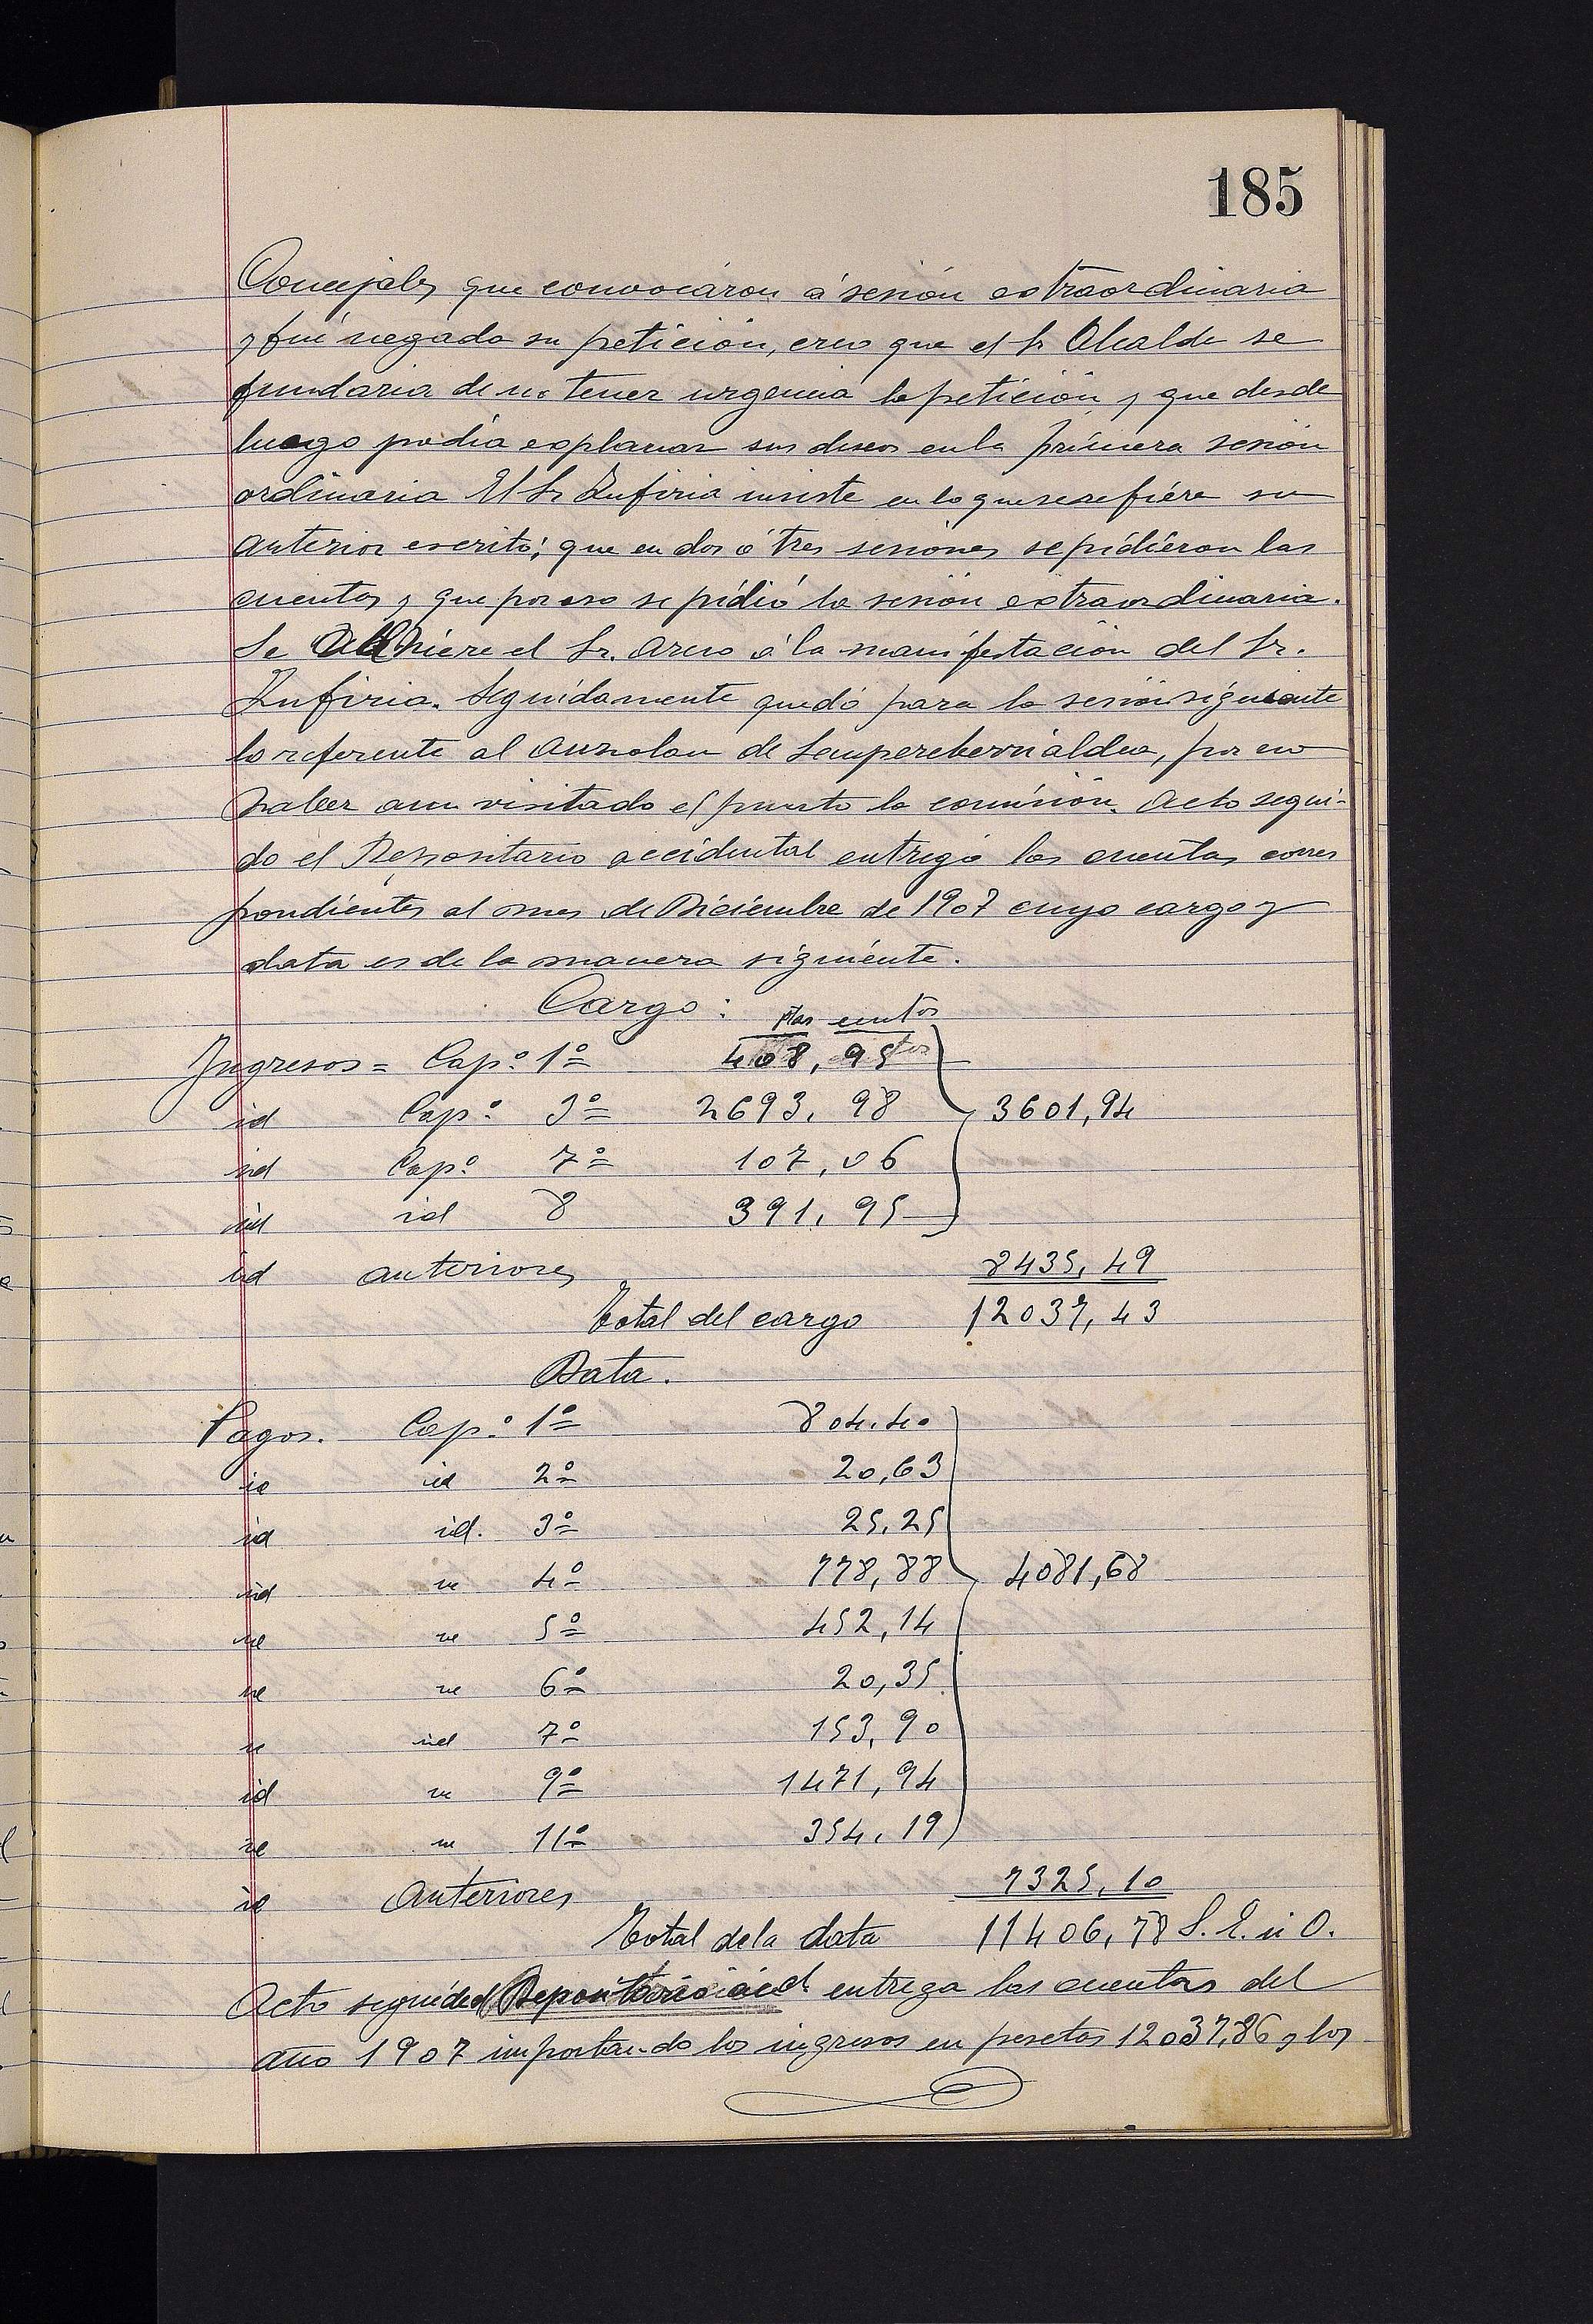 185
Concejales que convocáron á sesion extraordinaria
y fué negada su petición, creo que el Sr Alcalde se
fundaria de no tener urgencia la petición y que desde
luego podia explanar sus deseos en la primera sesión
ordinaria El Sr Zufiria insiste en lo que se refiére su
anterior escrito; que en dos ó tres sesiones se pidiéron las
cuentas y que por eso se pidió la sesion extraordinaria.
Se adhiere el Sr. Areso á la manifestación del Sr.
Zufiria. Seguidamente quedó para la sesión siguiente
lo referente al Auzolan de Sempereberrialdea, por no
haber aun visitado el punto la comisión. Acto segui-
do el Depositario accidental entregó las cuentas corres
pondientes al mes de Diciembre de 1907 cuyo cargo y
data es de la manera siguiente.
Cargo: ptas centos
Ingresos = Cap.º 1º 408,95
id Cap.º 3º 2693,98 3601,94
id Cap.º 7º 107,06
id id 8 391,95
id anteriores 8435,49
Total del cargo 12037,43
Data.
Pagos. Cap.º 1º 804.40
id id 2º 20,63
id id. 3º 25,25
id id 4º 778,88 4081,68
id id 5º 452,14
id id 6º 20,35
id id 7º 153,90
id id 9º 1471,94
id id 11º 354,19
id Anteriores 7325,10
Total de la data 11406,78 S. E. ú O.
Acto seguido el Depositario entrega las cuentas del
año 1907 importando los ingresos en pesetas 12037,86 y los